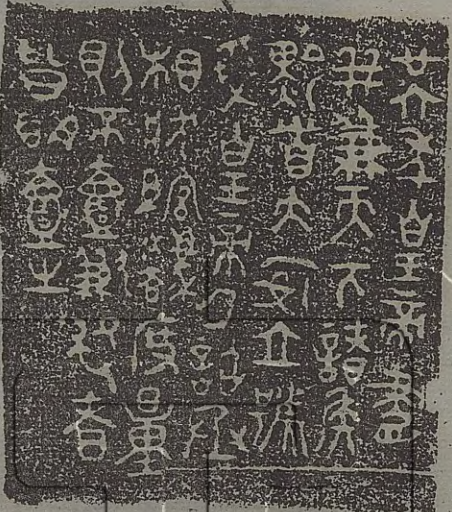 廿六年皇帝盡
并兼天下諸侯
黔首大安立號
為皇帝乃詔丞
相狀綰灋度量
則不壹歉疑者
皆明壹之